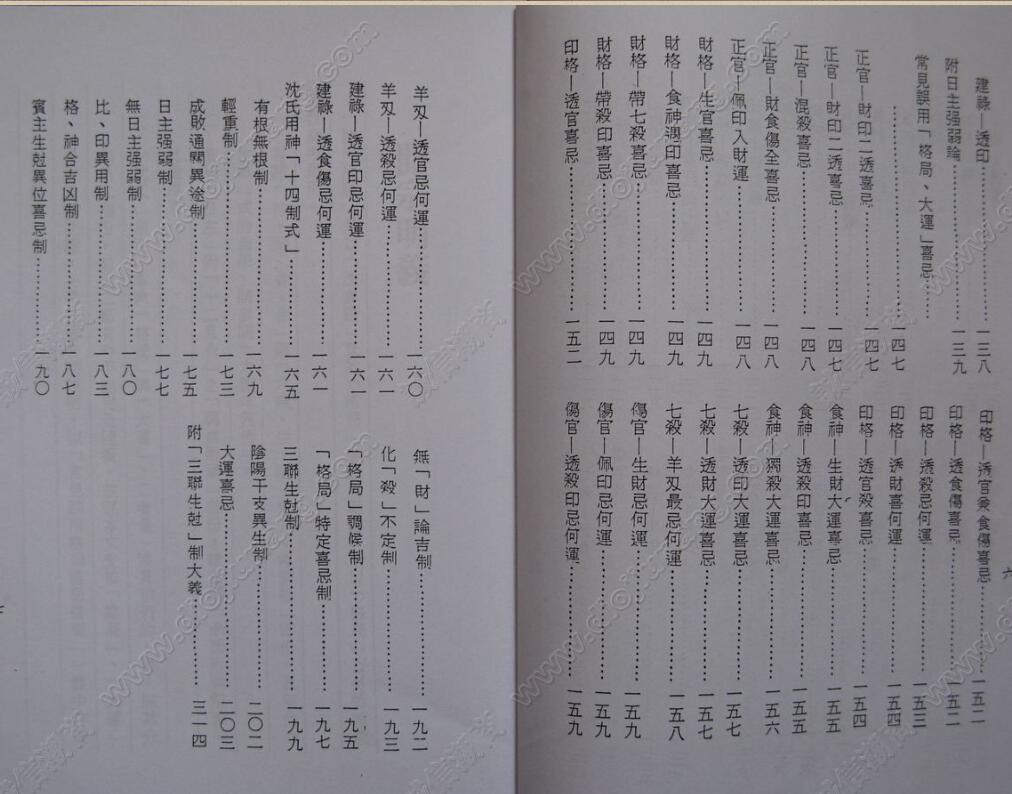 六
建祿—透印……一三八
附日主强弱論……一三九
常見誤用「格局、大運」喜忌……
……一四七
正官—財印二透喜忌……一四七
正官—財印二透喜忌……一四七
正官—混殺喜忌……一四八
正官—財食傷全喜忌……一四八
正官—佩印入財運……一四八
財格—生官喜忌……一四九
財格—食神遇印喜忌……一四九
財格—帶七殺喜忌……一四九
財格—帶殺印喜忌……一四九
印格—透官喜忌……一五二
印格—透官兼食傷喜忌……一五二
印格—透食傷喜忌……一五二
印格—透殺忌何運……一五三
印格—透財喜何運……一五四
印格—透官殺喜忌……一五四
食神—生財大運喜忌……一五五
食神—透殺印喜忌……一五五
食神—獨殺大運喜忌……一五六
七殺—透印大運喜忌……一五七
七殺—透財大運喜忌……一五七
七殺—羊刄最忌何運……一五八
傷官—生財忌何運……一五九
傷官—佩印忌何運……一五九
傷官—透殺印忌何運……一五九
羊刄—透官忌何運……一六〇
羊刄—透殺忌何運……一六一
建祿—透官印忌何運……一六一
建祿—透食傷忌何運……一六一
沈氏用神「十四制式」……一六五
有根無根制……一六九
輕重制……一七三
成敗通關異途制……一七五
日主强弱制……一七七
無日主强弱制……一八〇
比、印異用制……一八三
格、神合吉凶制……一八七
賓主生尅異位喜忌制……一九〇
無「財」論吉制……一九二
化「殺」不定制……一九三
「格局」調候制……一九五
「格局」特定喜忌制……一九七
三聯生尅制……一九九
陰陽干支異生制……二〇二
大運喜忌……二〇三
附「三聯生尅」制大義……三一四